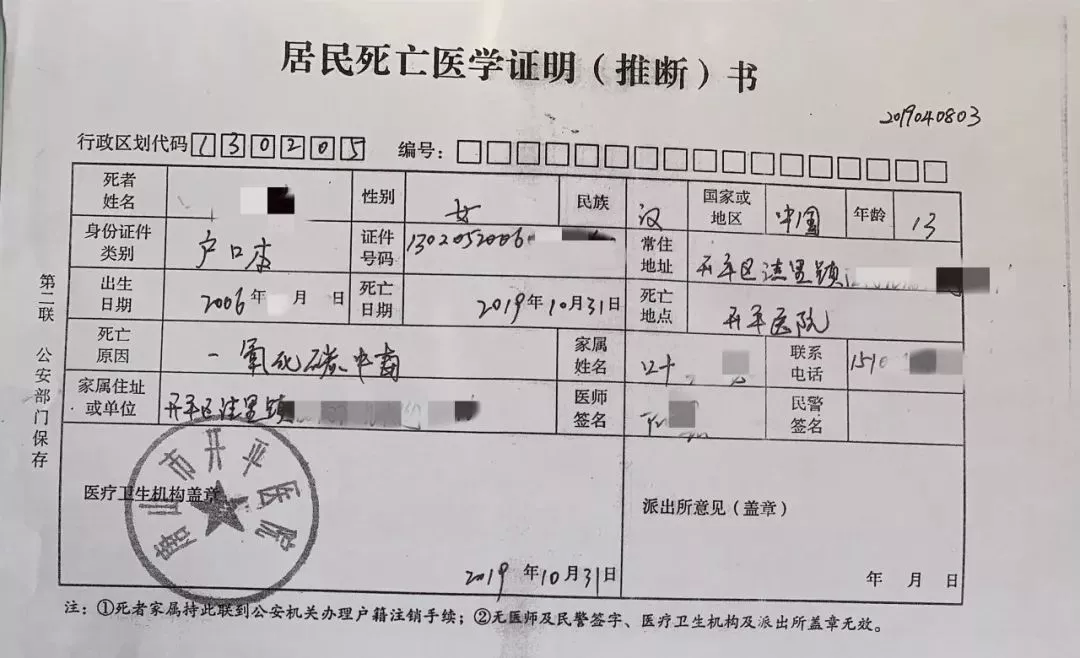 居民死亡医学证明（推断）书
2019040803
行政区划代码 130205 编号：
死者姓名 性别 女 民族 汉 国家或地区 中国 年龄 13
身份证件类别 户口本 证件号码 1302052006 常住地址 开平区洼里镇
出生日期 2006年 月 日 死亡日期 2019年10月31日 死亡地点 开平医院
死亡原因 一氧化碳中毒 家属姓名 联系电话 1510
家属住址或单位 开平区洼里镇 医师签名 民警签名
医疗卫生机构盖章
唐山市开平医院
派出所意见（盖章）
2019年10月31日
年 月 日
注：①死者家属持此联到公安机关办理户籍注销手续；②无医师及民警签字、医疗卫生机构及派出所盖章无效。
第二联 公安部门保存